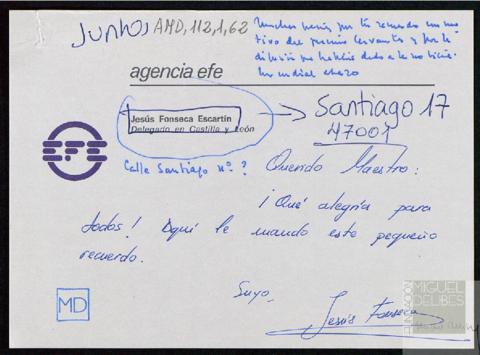 Junhos AMD,112,1,62
Muchas gracias por tu recuerdo con mo-
tivo del premio Cervantes y por la
difusión que habéis dado a la noticia
Un cordial abrazo
agencia efe
Jesús Fonseca Escartín
Delegado en Castilla y León
Santiago 17
47001
EFE
Calle Santiago nº ?
Querido Maestro:
¡Qué alegría para
todos! Aquí le mando este pequeño
recuerdo.
Suyo,
Jesús Fonseca
MD
FUNDACIÓN
MIGUEL
DELIBES